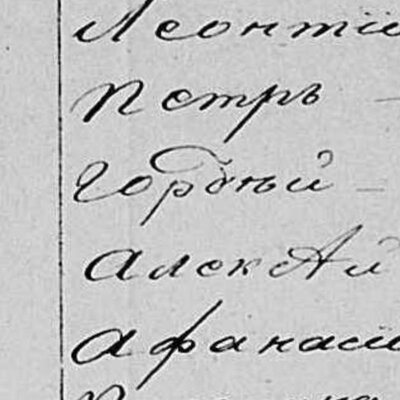 Леонтій
Петръ —
Гордѣй —
АлекѣАй
Афанасі